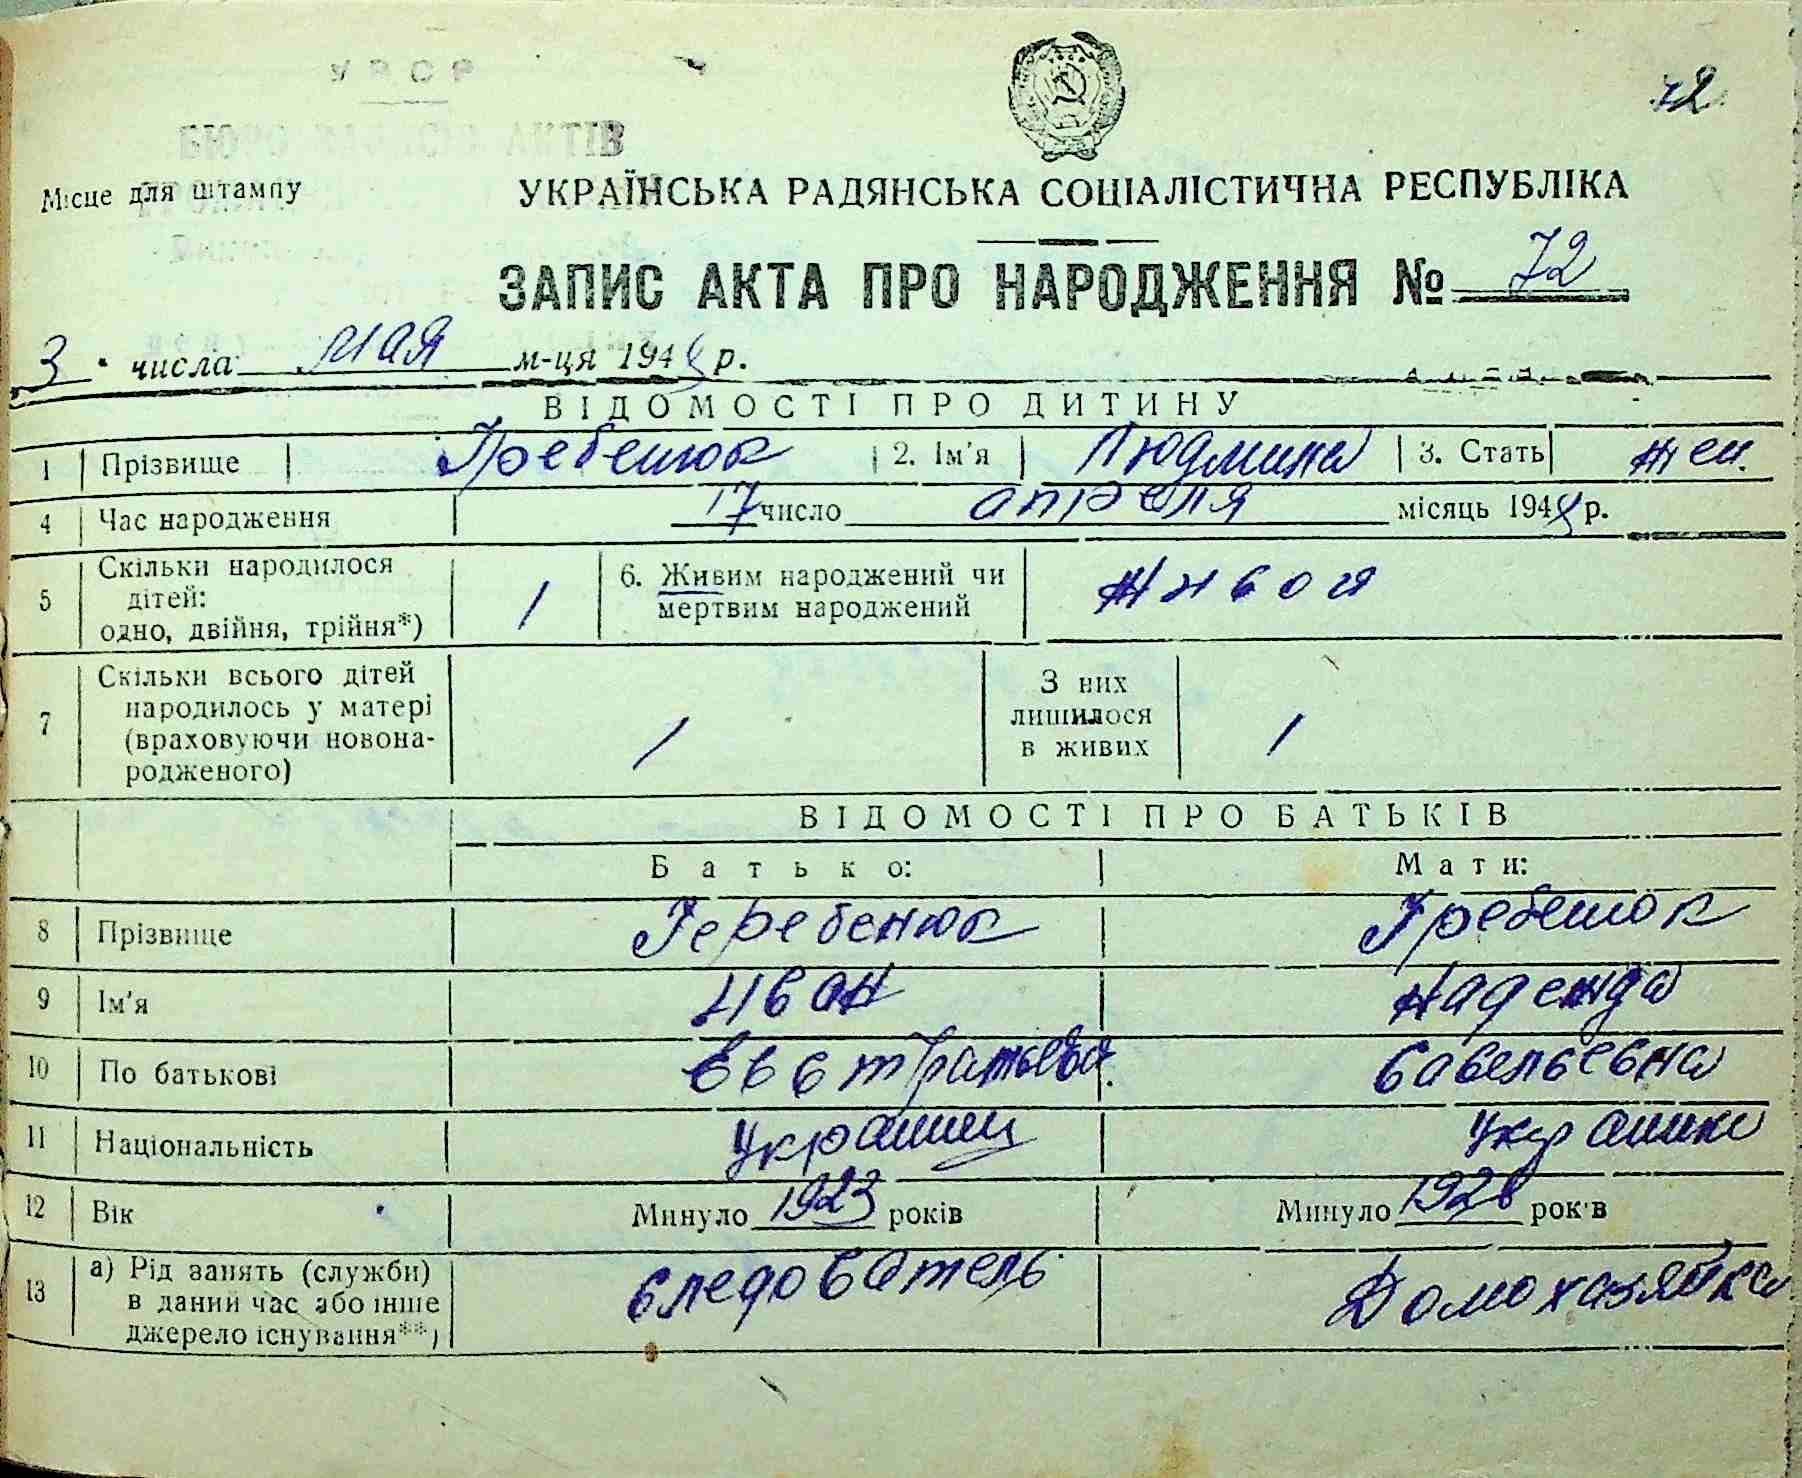 УРСР
72
БЮРО ЗАПИСІВ АКТІВ
Місце для штампу
УКРАЇНСЬКА РАДЯНСЬКА СОЦІАЛІСТИЧНА РЕСПУБЛІКА
ЗАПИС АКТА ПРО НАРОДЖЕННЯ № 72
3 числа мая м-ця 1948 р.
ВІДОМОСТІ ПРО ДИТИНУ
1 Прізвище Гребенюк 2. Ім'я Людмила 3. Стать жен.
4 Час народження 17 число апреля місяць 1948 р.
5 Скільки народилося дітей: одно, двійня, трійня*) 1 6. Живим народжений чи мертвим народжений живой
7 Скільки всього дітей народилось у матері (враховуючи новонародженого) 1 З них лишилося в живих 1
ВІДОМОСТІ ПРО БАТЬКІВ
Батько: Мати:
8 Прізвище Геребенюк Гребенюк
9 Ім'я Иван Надежда
10 По батькові Савельевна
11 Національність украинец украинка
12 Вік Минуло 1923 років Минуло років
13 а) Рід занять (служби) в даний час або інше джерело існування**) следователь Домохазяйка